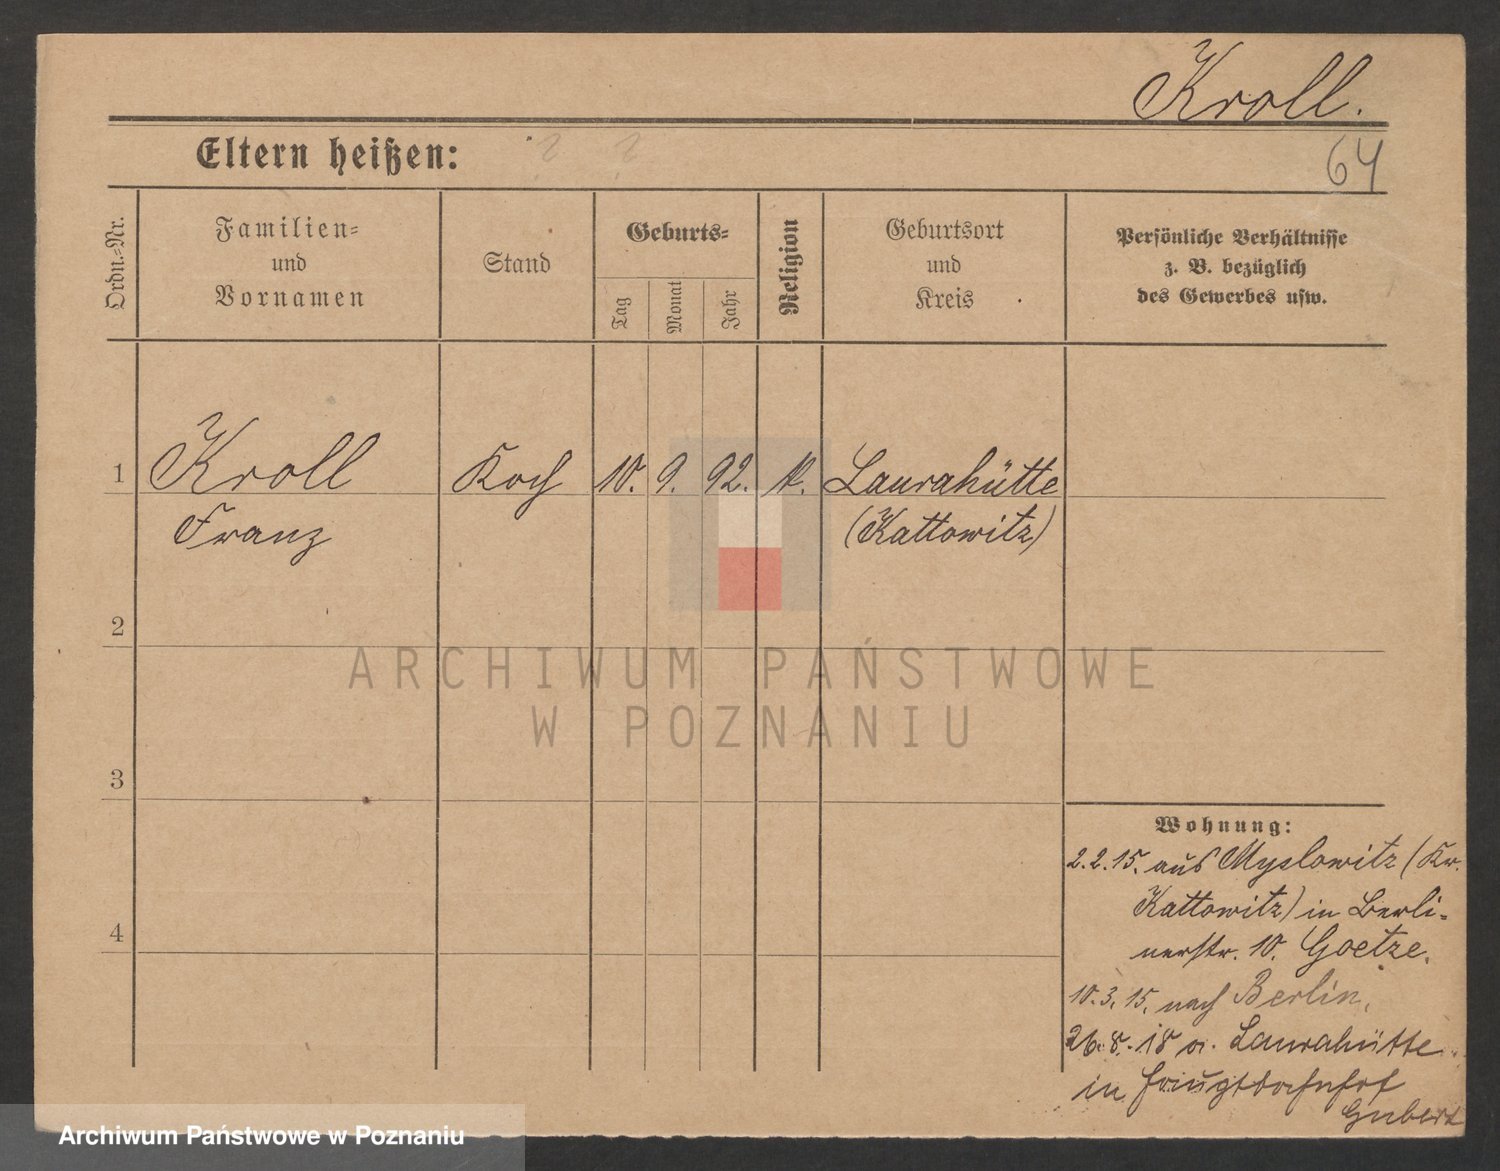 Kroll.
Eltern heißen: ? ?
64
Ordn.=Nr.
Familien=
und
Vornamen
Stand
Geburts=
Tag
Monat
Jahr
Religion
Geburtsort
und
Kreis
Persönliche Verhältnisse
z. B. bezüglich
des Gewerbes usw.
1 Kroll Koch 10. 9. 92. k. Laurahütte
Franz (Kattowitz)
2
ARCHIWUM PAŃSTWOWE
W POZNANIU
3
Wohnung:
2.2.15. aus Myslowitz (Kr.
Kattowitz) in Berli-
nerstr. 10. Goetze.
4
10.3.15. nach Berlin.
26.8.18 a. Laurahütte
in Hauptbahnhof
Archiwum Państwowe w Poznaniu